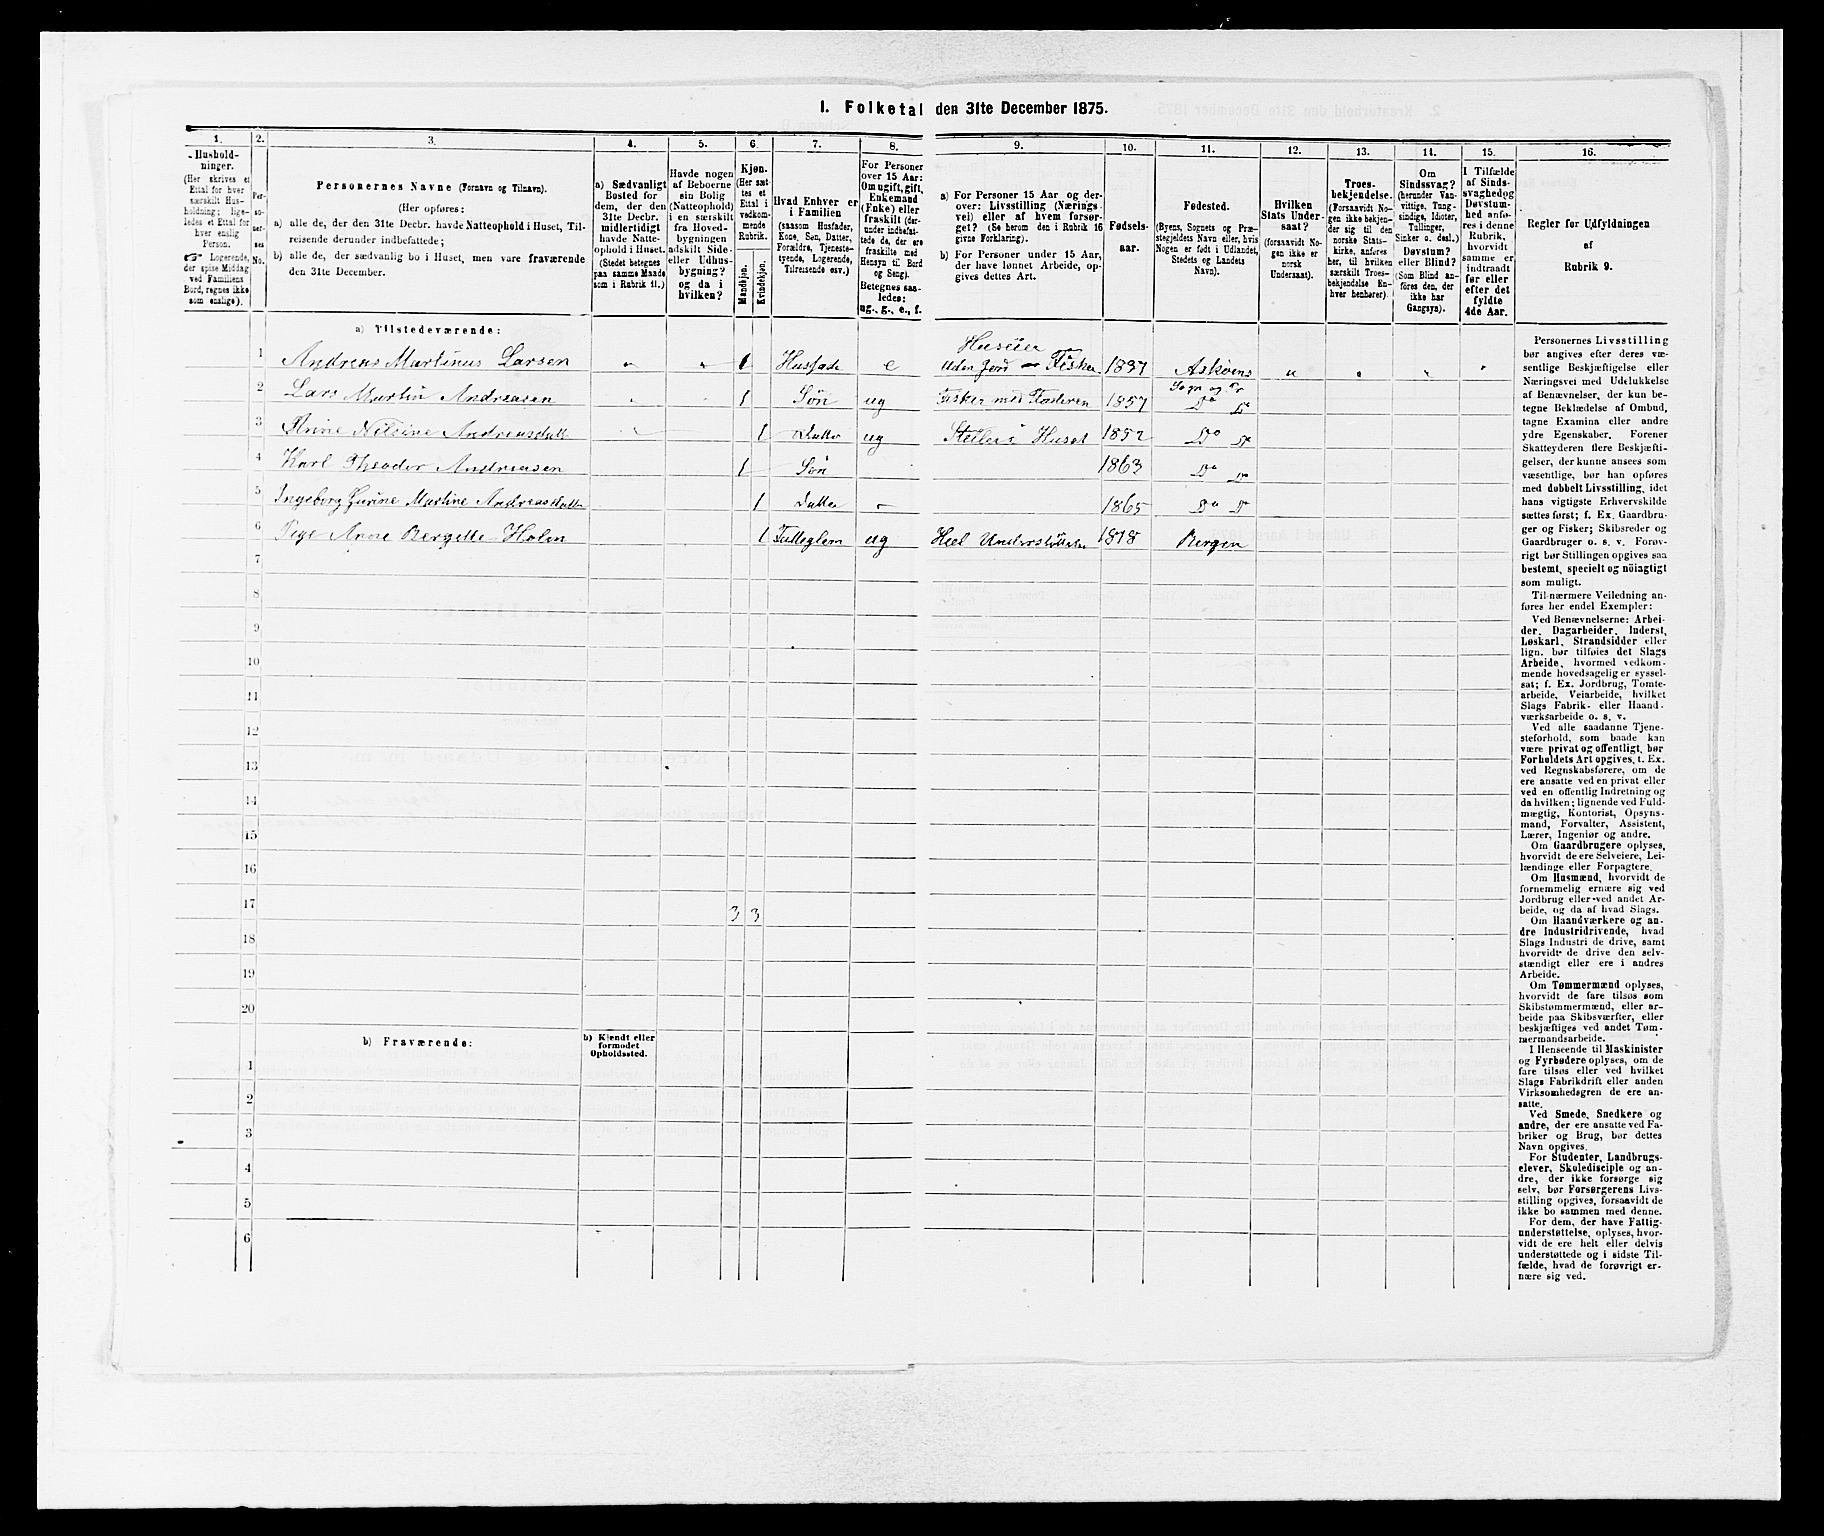 1. Folketal den 31te December 1875.
1.
2.
3.
4.
5.
6.
7.
8.
9.
10.
11.
12.
13.
14.
15.
16.
Hushold-
ninger.
(Her skrives et
Ettal for hver
særskilt Hus-
holdning; lige-
ledes et Ettal for
hver enslig
Person.
☞ Logerende,
der spise Middag
ved Familiens
Bord, regnes ikke
som enslige).
Per-
so-
ner-
nes
No.
Personernes Navne (Fornavn og Tilnavn).
(Her opføres:
a) alle de, der den 31te Decbr. havde Natteophold i Huset, Til-
reisende derunder indbefattede;
b) alle de, der sædvanlig bo i Huset, men vare fraværende
den 31te December.
a) Sædvanligt
Bosted for
dem, der den
31te Decbr.
midlertidigt
havde Natte-
ophold i Huset.
(Stedet betegnes
paa samme Maade
som i Rubrik 11.)
Havde nogen
af Beboerne
sin Bolig
(Natteophold)
i en særskilt
fra Hoved-
bygningen
adskilt Side-
eller Udhus-
bygning?
og da i
hvilken?
Kjøn.
(Her sæt-
tes et
Ettal i
vedkom-
mende
Rubrik.
Mandkjøn.
Kvindekjøn.
Hvad Enhver er
i Familien
(saasom Husfader,
Kone, Søn, Datter,
Forældre, Tjeneste-
tyende, Logerende,
Tilreisende osv.)
For Personer
over 15 Aar:
Om ugift, gift,
Enkemand
(Enke) eller
fraskilt (der-
under indbefat-
tede de, der ere
fraskilte med
Hensyn til Bord
og Seng).
Betegnes saa-
ledes:
ug., g., e., f.
a) For Personer 15 Aar og der-
over: Livsstilling (Nærings-
vei) eller af hvem forsør-
get? (Se herom den i Rubrik 16
givne Forklaring).
b) For Personer under 15 Aar,
der have lønnet Arbeide, op-
gives dettes Art.
Fødsels-
aar.
Fødested.
(Byens, Sognets og Præ-
stegjeldets Navn eller, hvis
Nogen er født i Udlandet,
Stedets og Landets
Navn).
Hvilken
Stats Under-
saat?
(forsaavidt No-
gen ikke er
norsk
Undersaat).
Troes-
bekjendelse.
(Forsaavidt No-
gen ikke bekjen-
der sig til den
norske Stats-
kirke, anføres
her, til hvilken
særskilt Troes-
bekjendelse En-
hver henhører).
Om
Sindssvag?
(herunder Van-
vittige, Tung-
sindige, Idioter,
Tullinger,
Sinker o. desl.)
Døvstum?
eller Blind?
(Som Blind an-
føres den, der
ikke har
Gangsyn).
I Tilfælde
af Sinds-
svaghed og
Døvstum-
hed anfø-
res i denne
Rubrik,
hvorvidt
samme er
indtraadt
før eller
efter det
fyldte
4de Aar.
Regler før Udfyldningen
af
Rubrik 9.
a) Tilstedeværende:
1 Andreas Martinus Larsen 1 Husfade e Huseier uden Jord Fisker 1837 Askøens Sogn og Pr
2 Lars Martin Andreasen 1 Søn ug Fisker med Faderen 1857 Do Do
3 Nilsine Andreasdatt 1 Datter ug Steller i Huset 1852 Do Do
4 Karl Theodor Andreasen 1 Søn 1863 Do Do
5 Ingeborg Martine Andreasdatt 1 Datter 1865 Do Do
6 Pige Anne Bergitte Holm 1 ug Heel Understøttelse 1818 Bergen
7
8
9
10
11
12
13
14
15
16
17 3 3
18
19
20
b) Fraværende:
b) Kjendt eller
formodet
Opholdssted.
1
2
3
4
5
6
Personernes Livsstilling
bør angives efter deres væ-
sentlige Beskjæftigelse eller
Næringsvei med Udelukkelse
af Benævnelser, der kun be-
tegne Beklædelse af Ombud,
tagne Examina eller andre
ydre Egenskaber. Forener
Skatteyderen flere Beskjæfti-
gelser, der kunne ansees som
væsentlige, bør han opføres
med dobbelt Livsstilling, idet
hans vigtigste Erhvervskilde
sættes først; f. Ex. Gaardbru-
ger og Fisker; Skibsreder og
Gaardbruger o. s. v. Forøv-
rigt bør Stillingen opgives saa
bestemt, specielt og nöiagtigt
som muligt.
Til nærmere Veiledning an-
føres her endel Exempler:
Ved Benævnelserne: Arbei-
der, Dagarbeider, Inderst,
Løskarl, Strandsidder eller
lign. bør tilføies det Slags
Arbeide, hvormed vedkom-
mende hovedsagelig er syssel-
sat; f. Ex. Jordbrug, Tomte-
arbeide, Veiarbeide, hvilket
Slags Fabrik- eller Haand-
værksarbeide o. s. v.
Ved alle saadanne Tjene-
steforhold, som baade kan
være privat og offentligt, bør
Forholdets Art opgives, t. Ex.
ved Regnskabsførere, om de
ere ansatte ved en privat eller
ved en offentlig Indretning og
da hvilken; lignende ved Fuld-
mægtig, Kontorist, Opsyns-
mand, Forvalter, Assistent,
Lærer, Ingeniør og andre.
Om Gaardbrugere oplyses,
hvorvidt de ere Selveiere, Lei-
lændinge eller Forpagtere.
Om Husmænd, hvorvidt de
fornemmelig ernære sig ved
Jordbrug eller ved andet Ar-
beide, og da af hvad Slags.
Om Haandværkere og an-
dre Industridrivende, hvad
Slags Industri de drive, samt
hvorvidt de drive den selv-
stændigt eller ere i andres
Arbeide.
Om Tømmermænd oplyses,
hvorvidt de fare tilsøs som
Skibstømmermænd, eller ar-
beide paa Skibsværfter, eller
beskjæftiges ved andet Tøm-
mermandsarbeide.
I Henseende til Maskinister
og Fyrbødere oplyses, om de
fare tilsøs eller ved hvilket
Slags Fabrikdrift eller anden
Virksomhedsgren de ere an-
satte.
Ved Smede, Snedkere og
andre, der ere ansatte ved Fa-
briker og Brug, bør dettes
Navn opgives.
For Studenter, Landbrugs-
elever, Skoledisciple og an-
dre, der ikke forsørge sig
selv, bør Forsørgerens Livs-
stilling opgives, forsaavidt de
ikke bo sammen med denne.
For dem, der have Fattig-
understøttelse, oplyses, hvor-
vidt de ere helt eller delvis
understøttede og i sidste Til-
fælde, hvad de forøvrigt er-
nære sig ved.